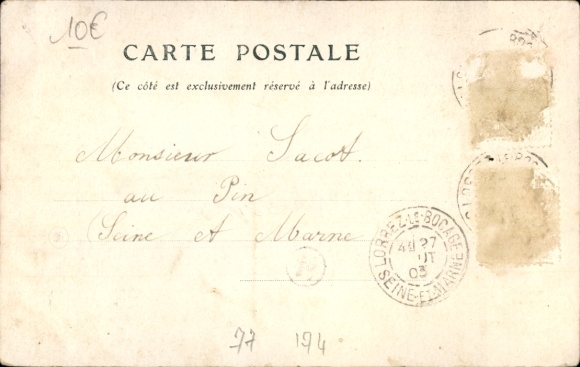 10€
CARTE POSTALE
(Ce côté est exclusivement réservé à l'adresse)
Monsieur Sacot.
au Pin
Seine et Marne
LORREZ-LE-BOCAGE
27
03
SEINE-ET-MARNE
77 194